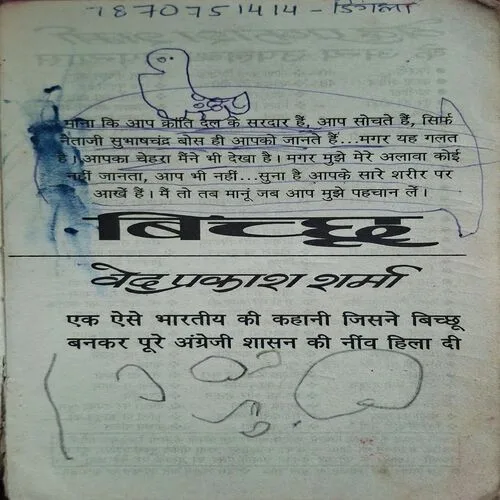 7870751414 - डिंगला
माना कि आप क्रांति दल के सरदार हैं, आप सोचते हैं, सिर्फ
नेताजी सुभाषचंद्र बोस ही आपको जानते हैं...मगर यह गलत
है। आपका चेहरा मैंने भी देखा है। मगर मुझे मेरे अलावा कोई
नहीं जानता, आप भी नहीं...सुना है आपके सारे शरीर पर
आखें हैं। मैं तो तब मानूं जब आप मुझे पहचान लें।
बिच्छू
वेद प्रकाश शर्मा
एक ऐसे भारतीय की कहानी जिसने बिच्छू
बनकर पूरे अंग्रेजी शासन की नींव हिला दी